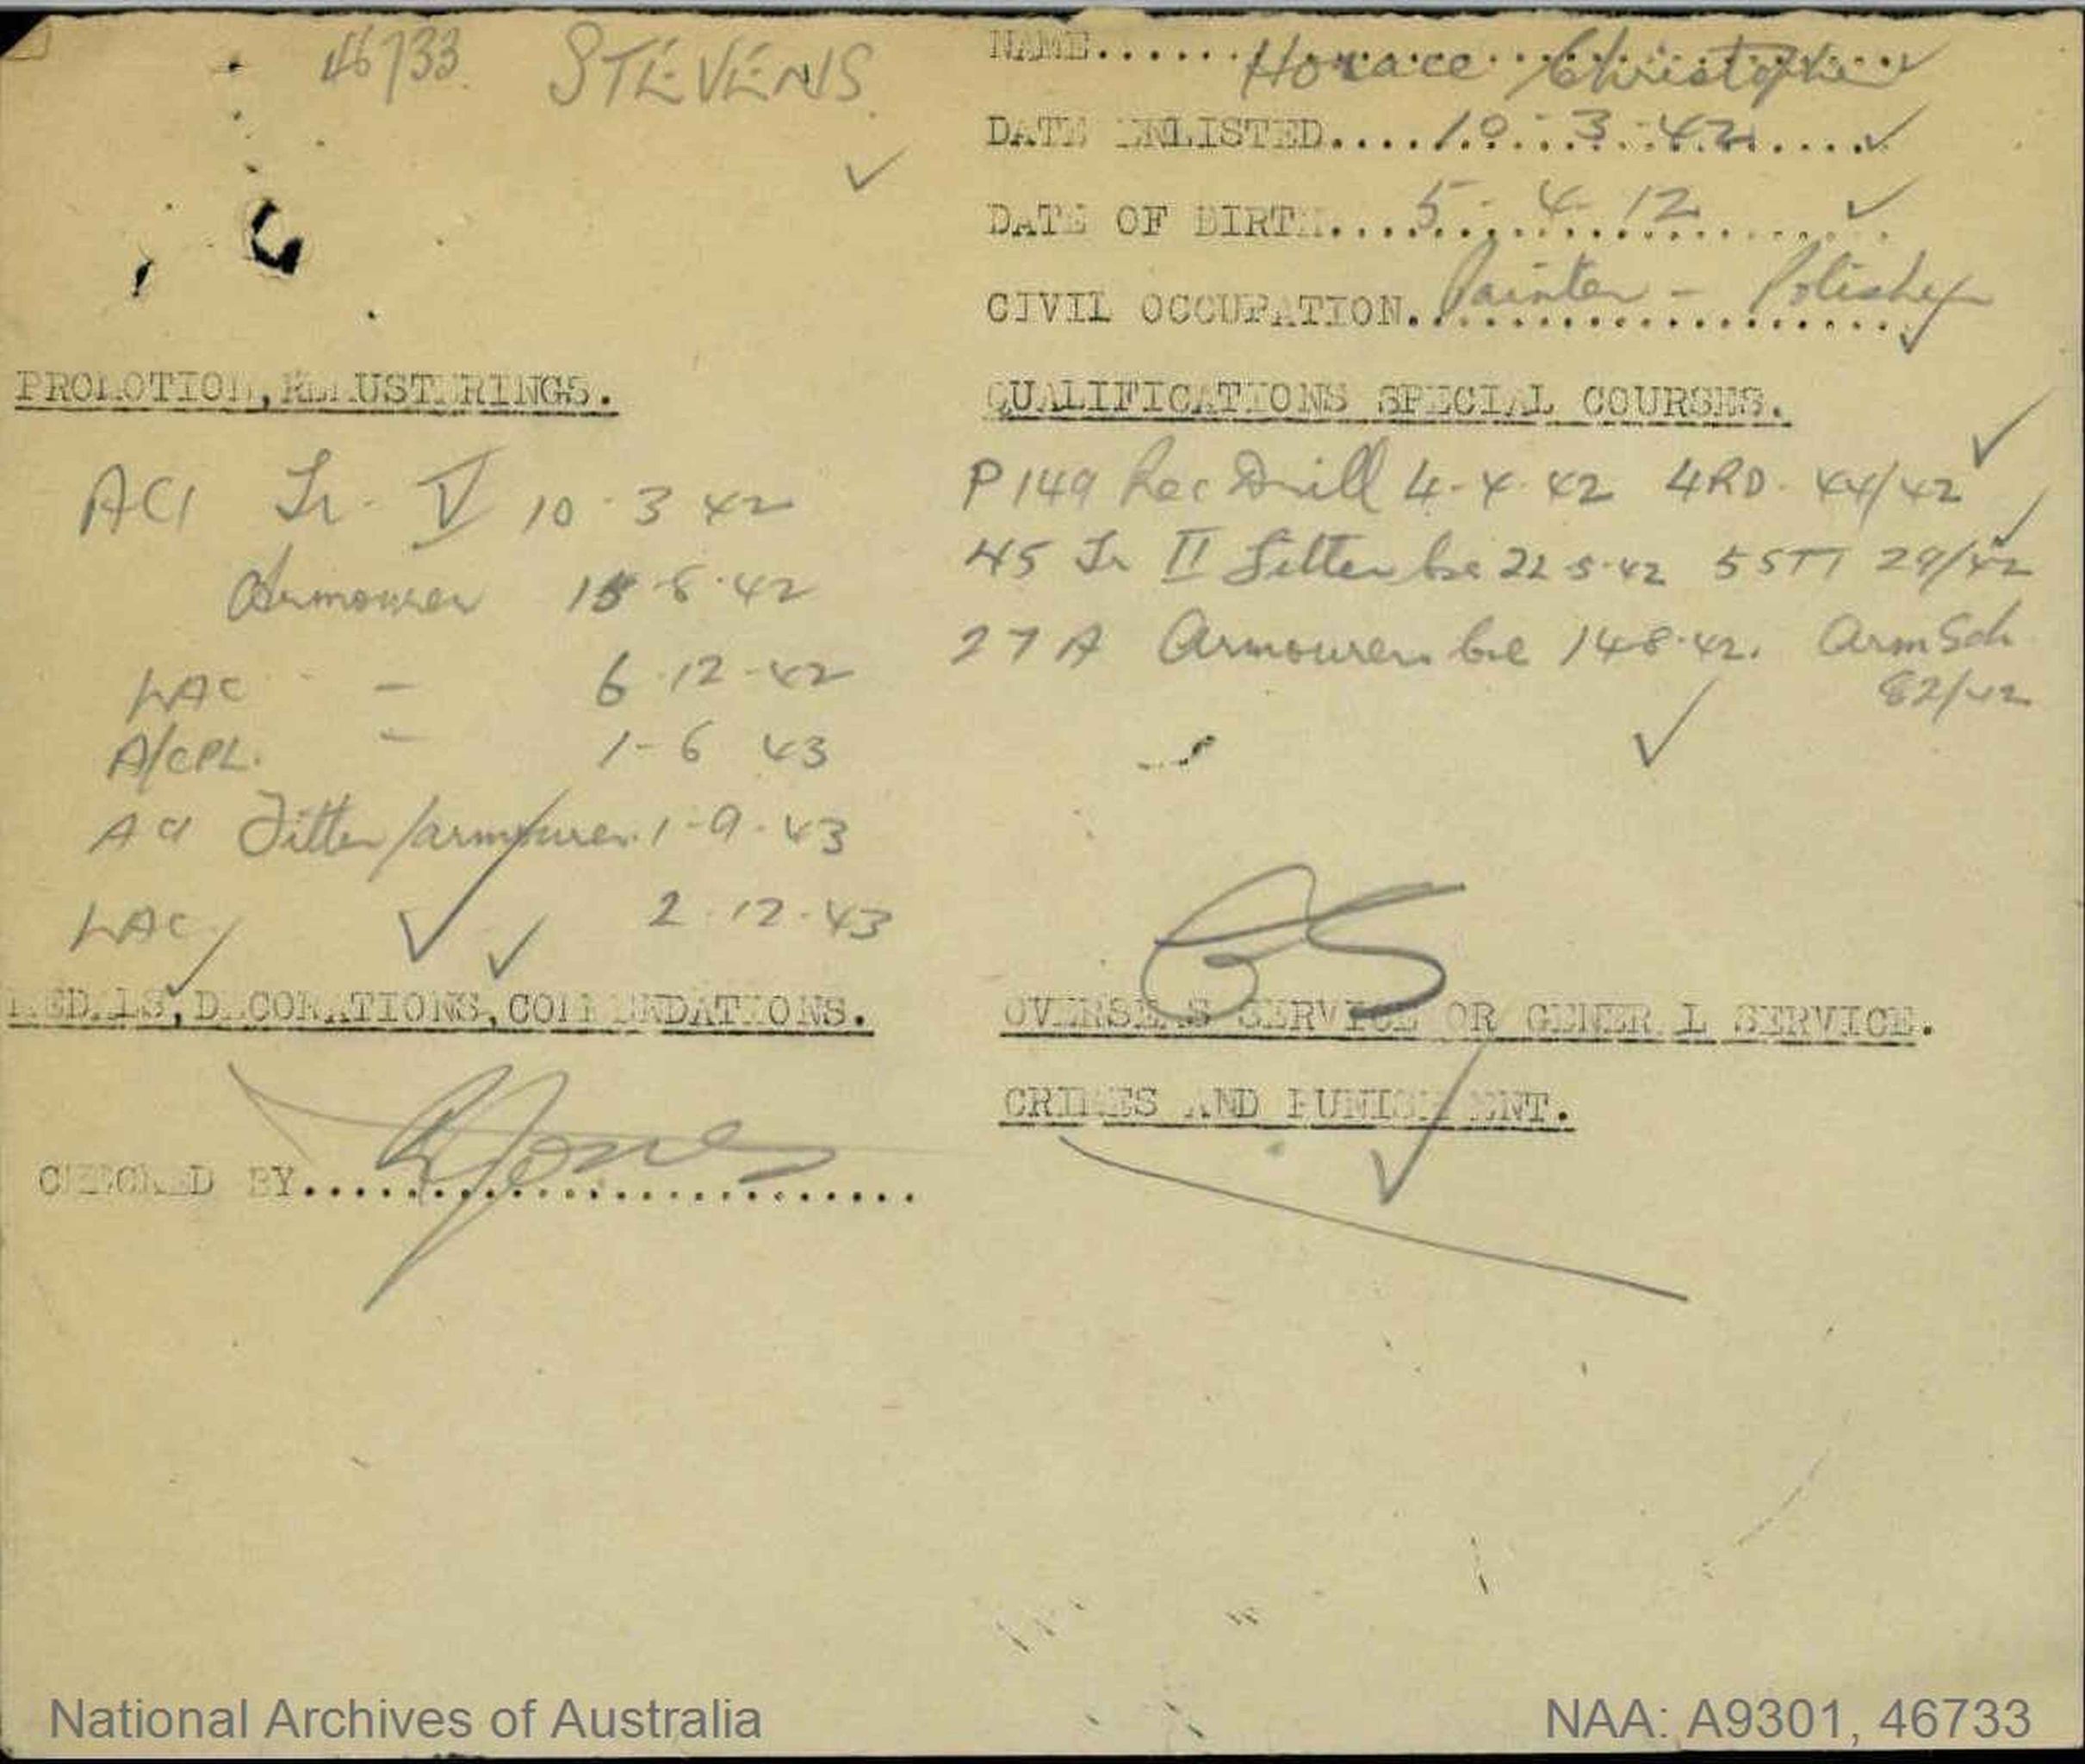 46733 STEVENS
NAME.......Horace Christopher
DATE ENLISTED....10-3-42
DATE OF BIRTH....5-4-12
CIVIL OCCUPATION. Painter - Polisher
PROMOTION, REMUSTERINGS.
AC1 Tr. V 10-3-42
Armourer 15-8-42
LAC - 6-12-42
A/CPL. - 1-6 43
AC1 Fitter/armourer 1-9-43
LAC 2-12-43
QUALIFICATIONS SPECIAL COURSES.
P149 Rec Drill 4-4-42 4RD. 44/42
45 Tr II Fitter 22-5-42 5STT 29/42
27A Armourers 14-8-42. Arm Sch
82/42
MEDALS, DECORATIONS, COMMENDATIONS.
CHECKED BY.......Jones
OVERSEAS SERVICE OR GENERAL SERVICE.
CRIMES AND PUNISHMENT.
National Archives of Australia
NAA: A9301, 46733